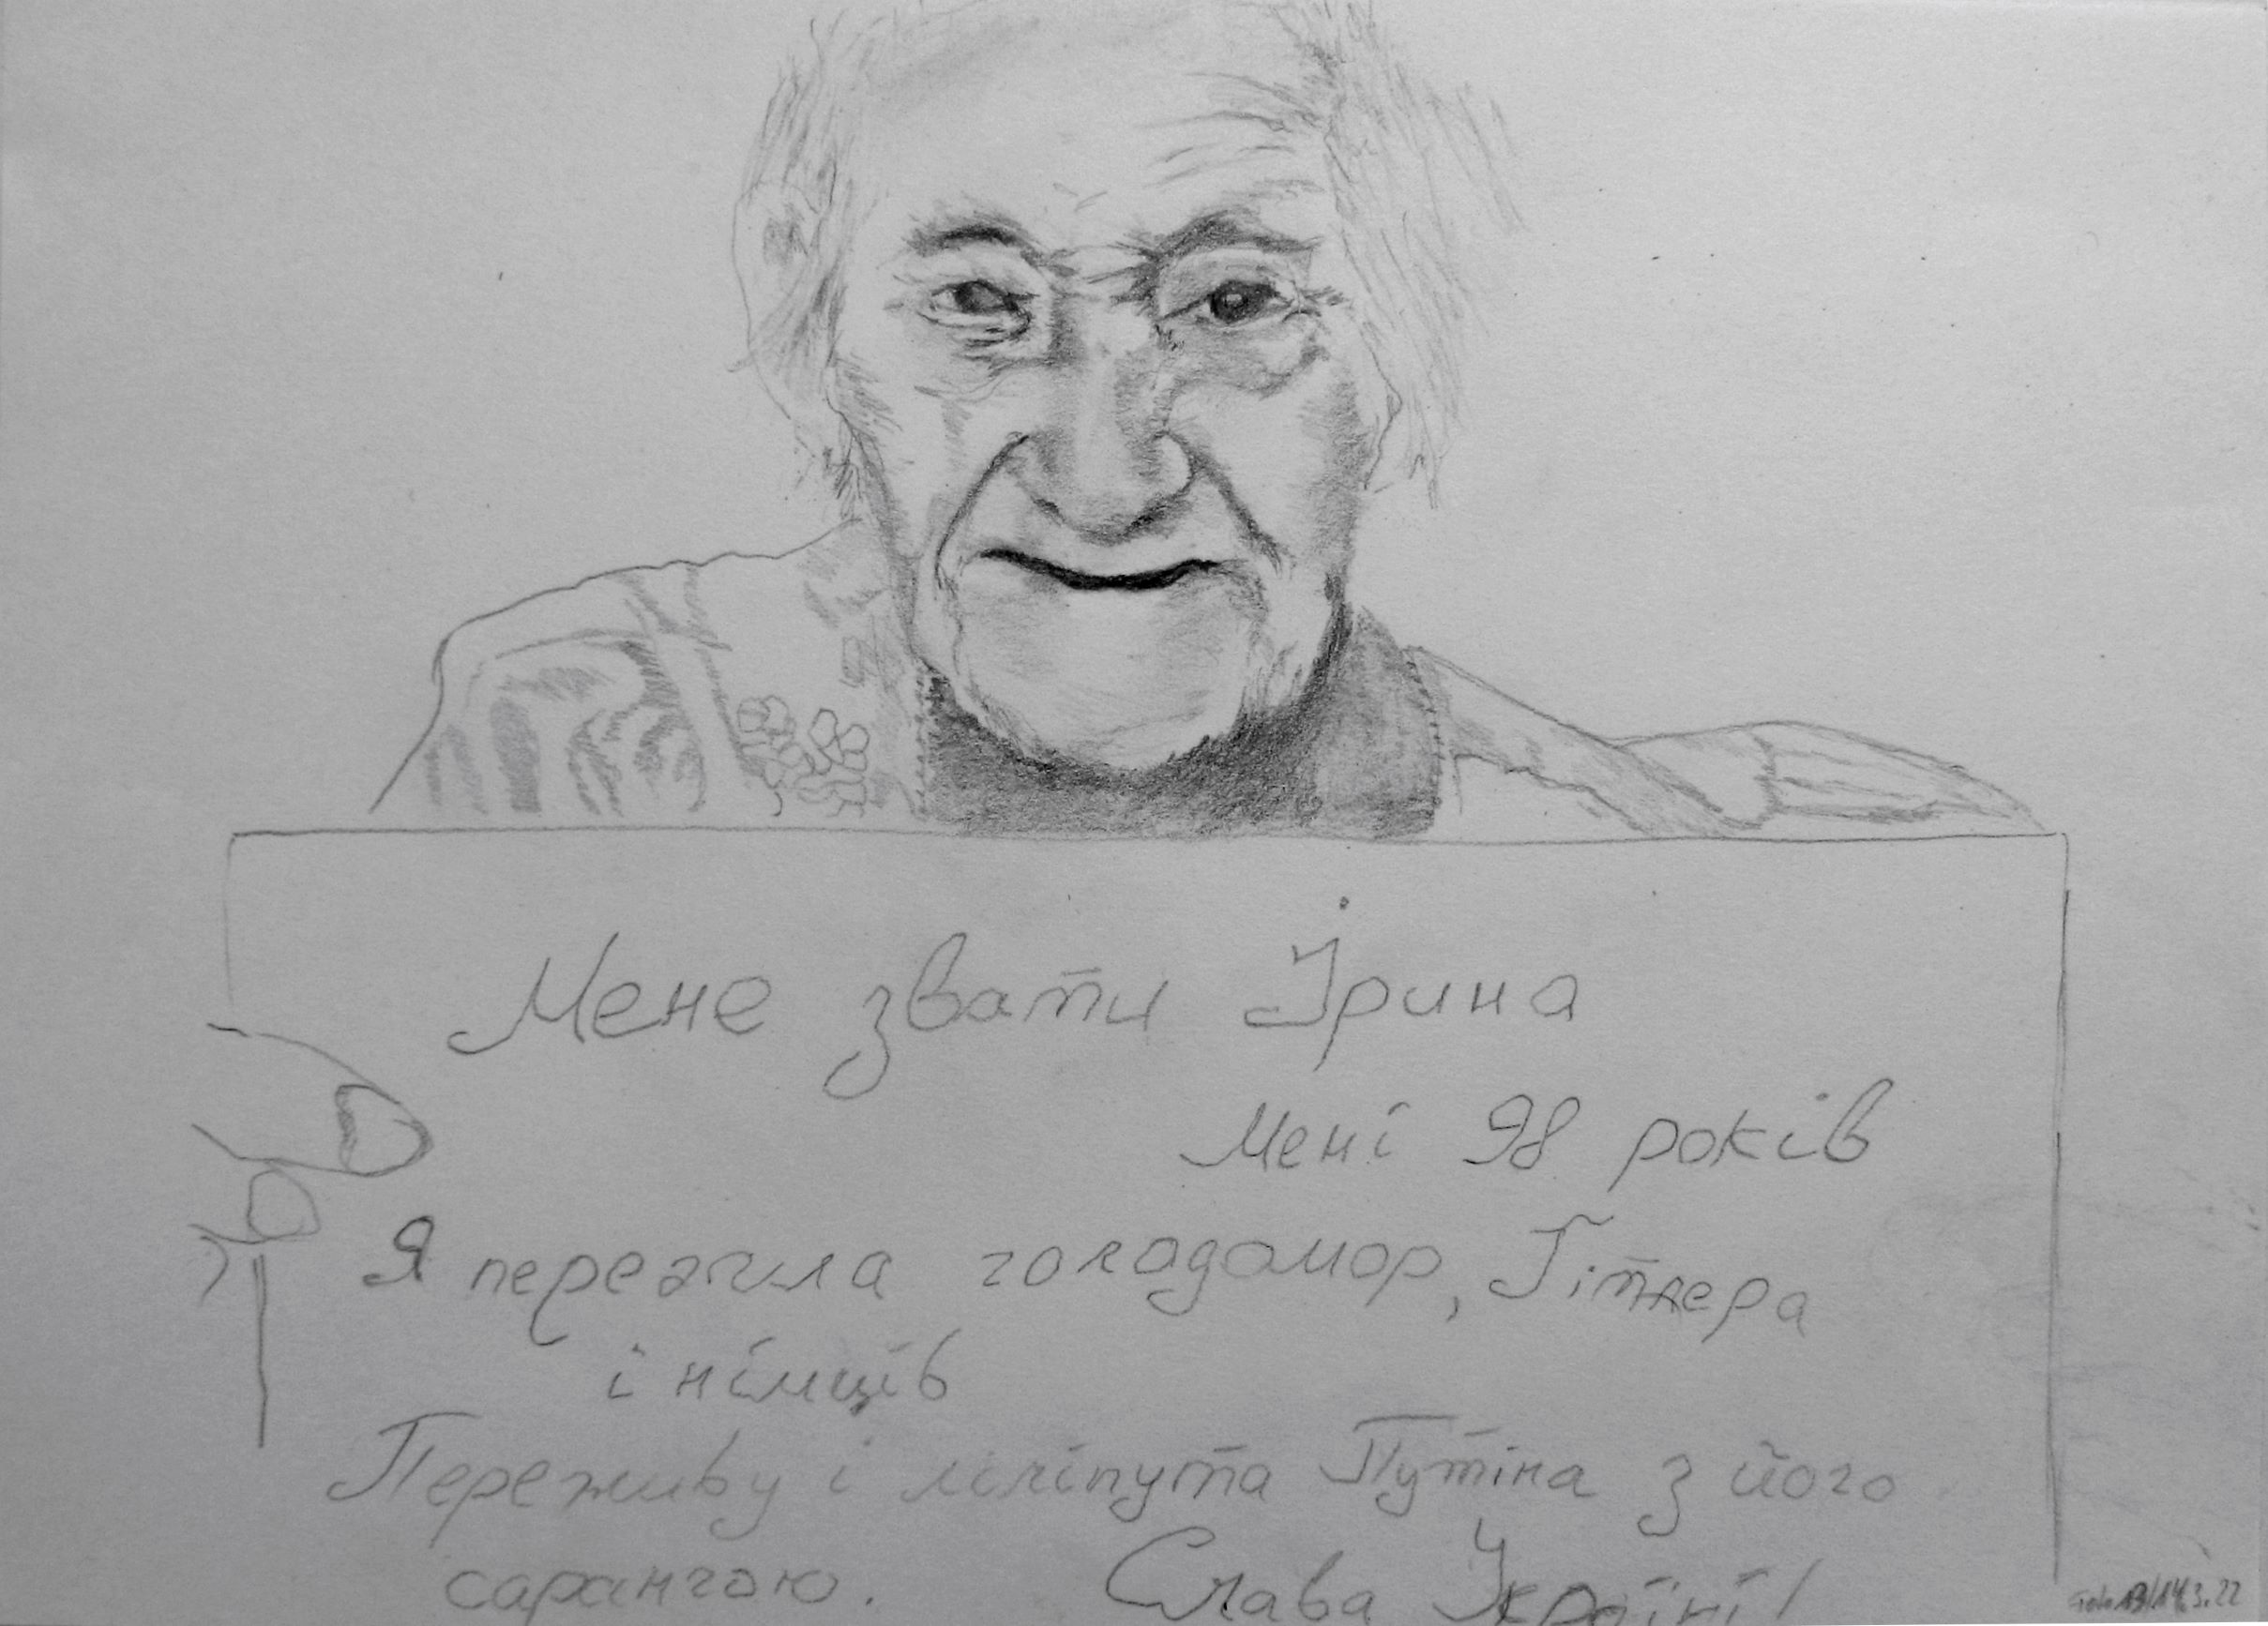 Мене звати Ірина
Мені 98 років
Я пережила голодомор, Гітлера
і німців
Переживу і ліліпута Путіна з його
саранчою. Слава Україні!
13/14.3.22